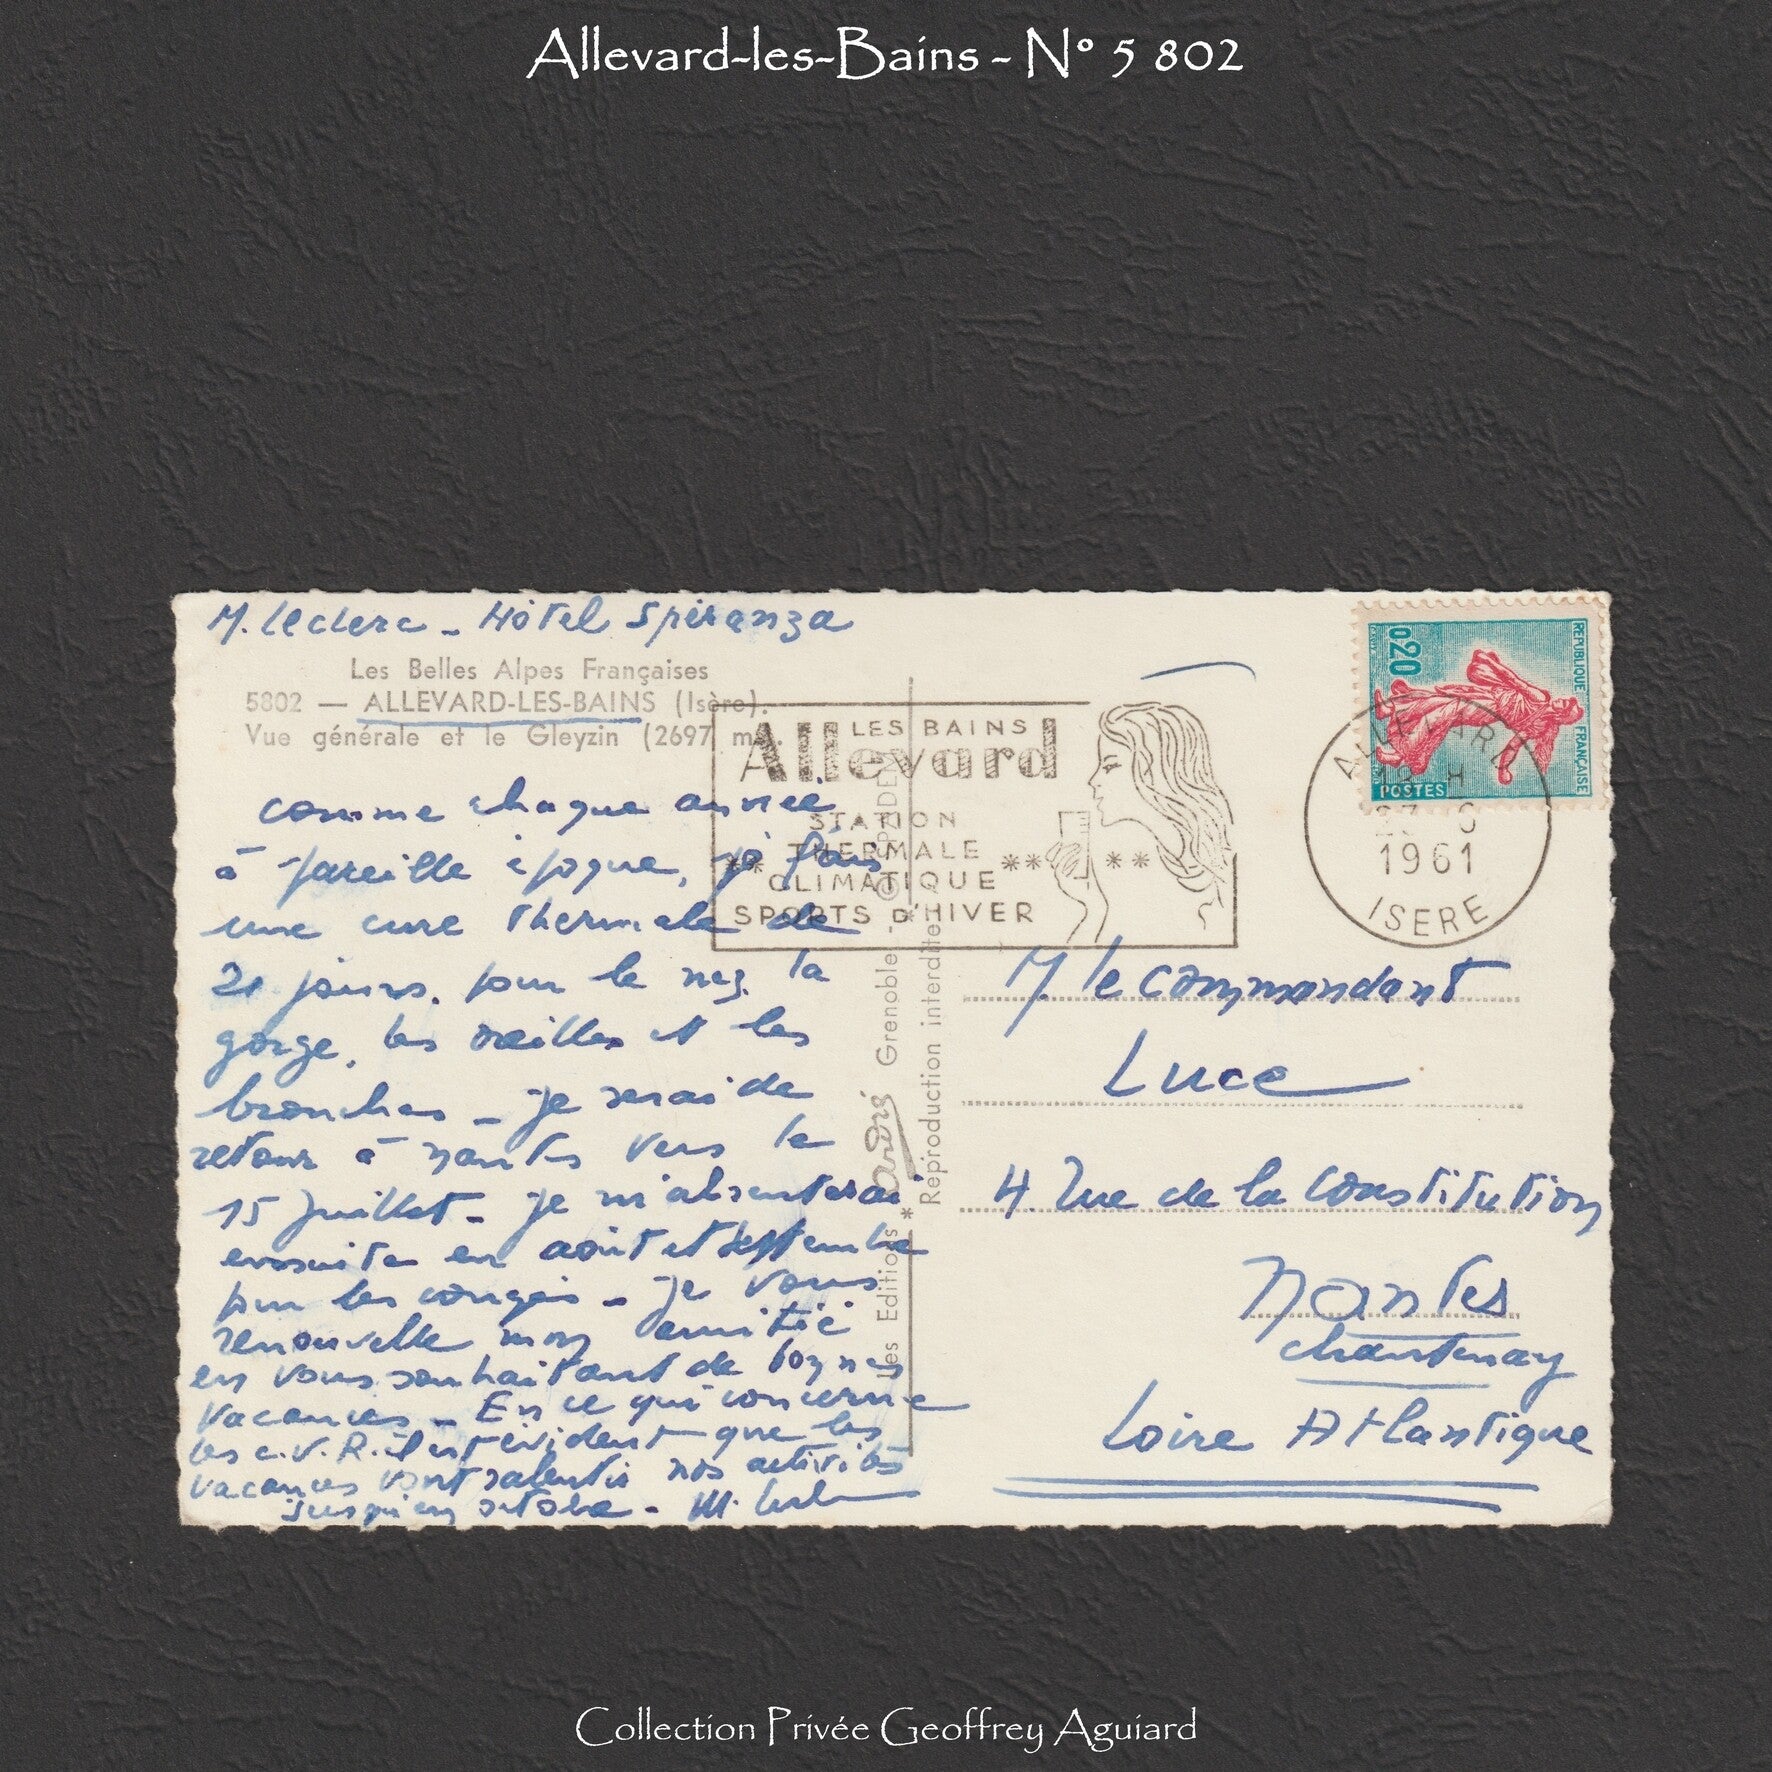 Allevard-les-Bains - N° 5 802
M. Leclerc - Hôtel Speranza
Les Belles Alpes Françaises
5802 — ALLEVARD-LES-BAINS (Isère).
Vue générale et le Gleyzin (2697 m.).
comme chaque année
à pareille époque, je fais
une cure thermale de
21 jours, pour le nez, la
gorge, les oreilles et les
bronches - je serai de
retour à Nantes vers le
15 juillet - je m'absenterai
ensuite en août et septembre
pour les congés - je vous
renouvelle mon amitié
en vous souhaitant de bonnes
vacances - En ce qui concerne
les C.V.R. il est évident que les
vacances vont ralentir nos activités
jusqu'en octobre -
LES BAINS
Allevard
STATION
THERMALE
CLIMATIQUE
SPORTS D'HIVER
0,20
REPUBLIQUE FRANÇAISE
POSTES
ALLEVARD
1961
ISERE
Les Editions * André Grenoble - ©
Reproduction interdite
M. le Commandant
Luce
4. Rue de la Constitution
Nantes
Chantenay
Loire Atlantique
Collection Privée Geoffrey Aguiard